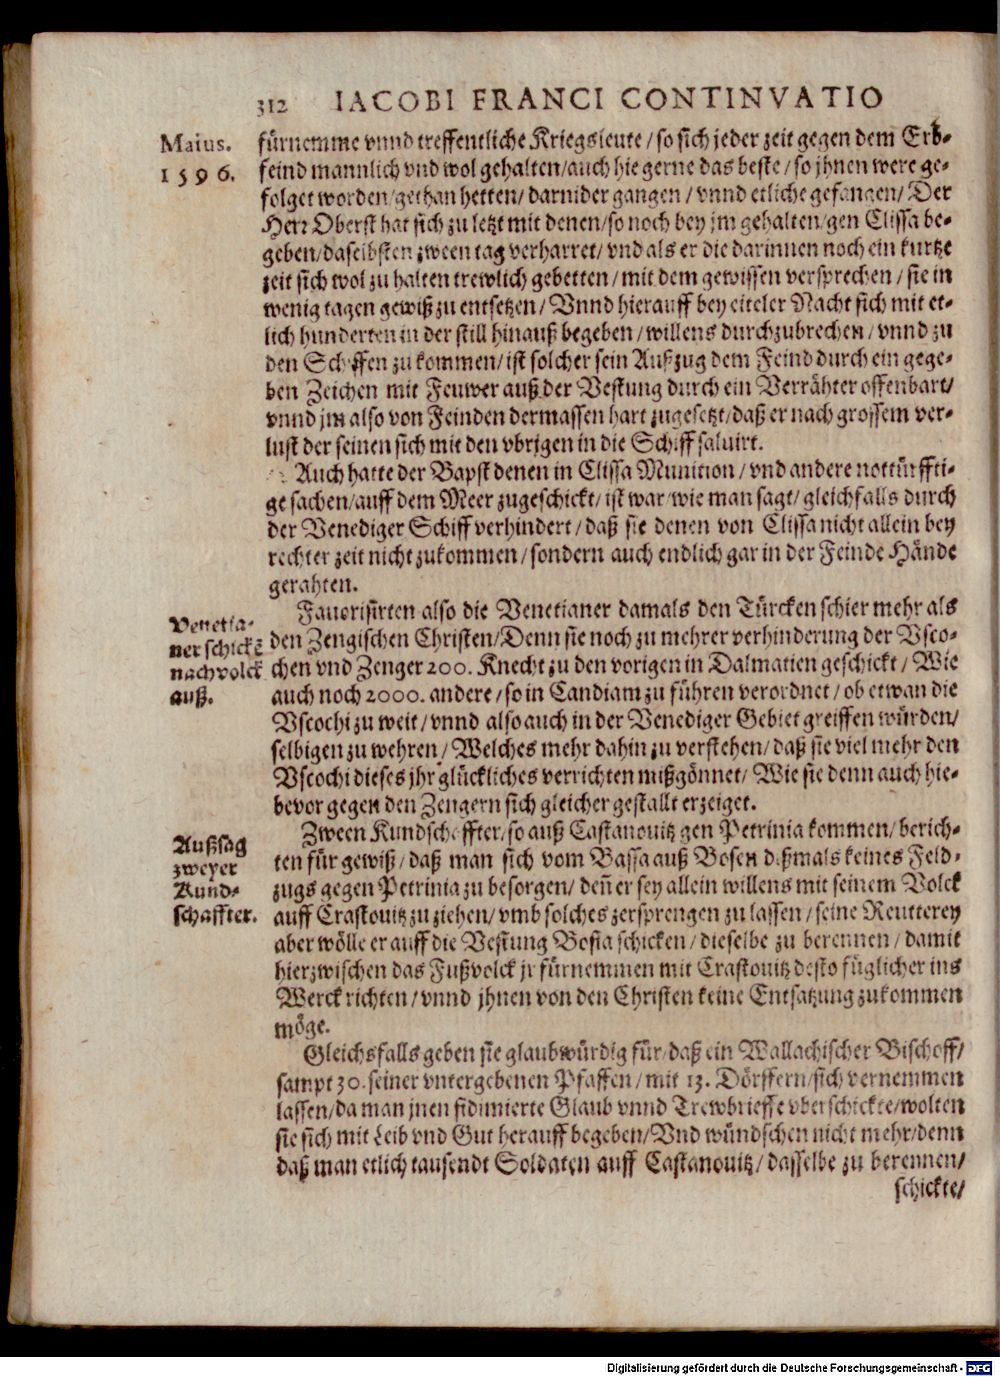 312 IACOBI FRANCI CONTINVATIO
Maius.
1596.
fürnemme vnnd treffentliche Kriegsleute / so sich jeder zeit gegen dem Erb-
feind mannlich vnd wol gehalten / auch hie gerne das beste / so jhnen were ge-
folget worden / gethan hetten / darnider gangen / vnnd etliche gefangen / Der
Herr Oberst hat sich zu letzt mit denen / so noch bey jm gehalten / gen Clissa be-
geben / daselbsten zween tag verharret / vnd als er die darinnen noch ein kurtze
zeit sich wol zu halten trewlich gebetten / mit dem gewissen versprechen / sie in
wenig tagen gewiß zu entsetzen / Vnnd hierauff bey eiteler Nacht sich mit et-
lich hunderten in der still hinauß begeben / willens durchzubrechen / vnnd zu
den Schiffen zu kommen / ist solcher sein Außzug dem Feind durch ein gege-
ben Zeichen mit Feuwer auß der Vestung durch ein Verrähter offenbart /
vnnd jm also von Feinden dermassen hart zugesetzt / daß er nach grossem ver-
lust der seinen sich mit den vbrigen in die Schiff saluirt.
Auch hatte der Bapst denen in Clissa Munition / vnd andere nottürffti-
ge sachen / auff dem Meer zugeschickt / ist war / wie man sagt / gleichfalls durch
der Venediger Schiff verhindert / daß sie denen von Clissa nicht allein bey
rechter zeit nicht zukommen / sondern auch endlich gar in der Feinde Hände
gerahten.
Venetia-
ner schickē
nach volck
auß.
Fauorisirten also die Venetianer damals den Türcken schier mehr als
den Zengischen Christen / Denn sie noch zu mehrer verhinderung der Vsco-
chen vnd Zenger 200. Knecht zu den vorigen in Dalmatien geschickt / Wie
auch noch 2000. andere / so in Candiam zu führen verordnet / ob etwan die
Vscochi zu weit / vnnd also auch in der Venediger Gebiet greiffen würden /
selbigen zu wehren / Welches mehr dahin zu verstehen / daß sie viel mehr den
Vscochi dieses jhr glückliches verrichten mißgönnet / Wie sie denn auch hie-
bevor gegen den Zengern sich gleicher gestallt erzeiget.
Außsag
zweyer
Kund-
schaffter.
Zween Kundschaffter / so auß Castanovitz gen Petrinia kommen / berich-
ten für gewiß / daß man sich vom Bassa auß Bosen dißmals keines Feld-
zugs gegen Petrinia zu besorgen / deñ er sey allein willens mit seinem Volck
auff Crastovitz zu ziehen / vmb solches zersprengen zu lassen / seine Reutterey
aber wölle er auff die Vestung Bosia schicken / dieselbe zu berennen / damit
hierzwischen das Fußvolck jr fürnemmen mit Crastovitz desto füglicher ins
Werck richten / vnnd jhnen von den Christen keine Entsatzung zukommen
möge.
Gleichsfalls geben sie glaubwürdig für / daß ein Wallachischer Bischoff /
sampt 30. seiner vntergebenen Pfaffen / mit 13. Dörffern / sich vernemmen
lassen / da man jnen fidimierte Glaub vnnd Trewbrieffe vberschickte / wolten
sie sich mit Leib vnd Gut herauff begeben / Vnd wündschen nicht mehr / denn
daß man etlich tausendt Soldaten auff Castanovitz / dasselbe zu berennen /
schickte /
Digitalisierung gefördert durch die Deutsche Forschungsgemeinschaft - DFG